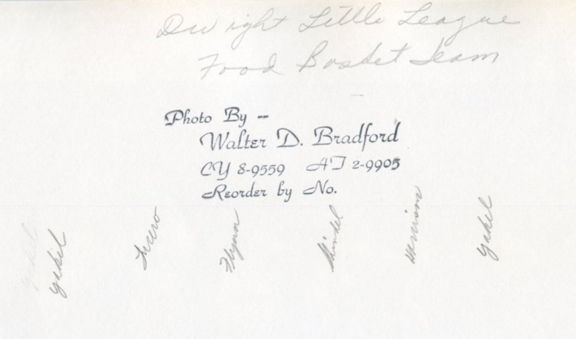 Dwight Little League
Food Basket Team
Photo By --
Walter D. Bradford
CY 8-9559 AT 2-9905
Reorder by No.
Yabel
Flynn
Yabel